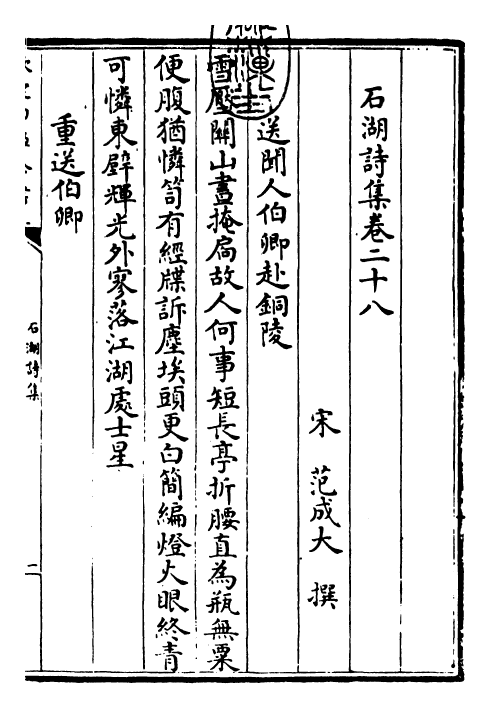 石湖詩集卷二十八
宋 范成大 撰
送聞人伯卿赴銅陵
雪壓關山晝掩扃故人何事短長亭折腰直為瓶無粟
便腹猶憐笥有經牒訴塵埃頭更白簡編燈火眼終青
可憐東壁輝光外寥落江湖處士星
重送伯卿
石湖詩集
二